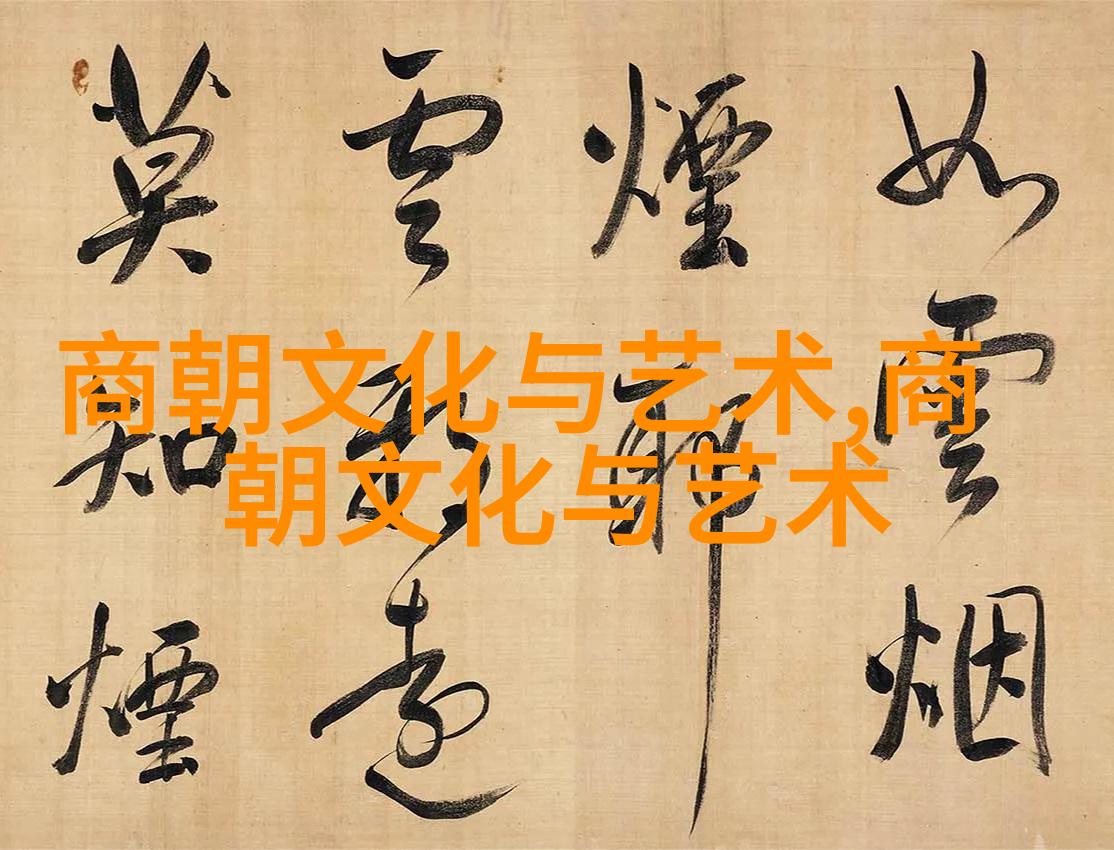 商朝文化与艺术,商
朝文化与艺术
如雲烟
煙耶
雲遠
莫知煙